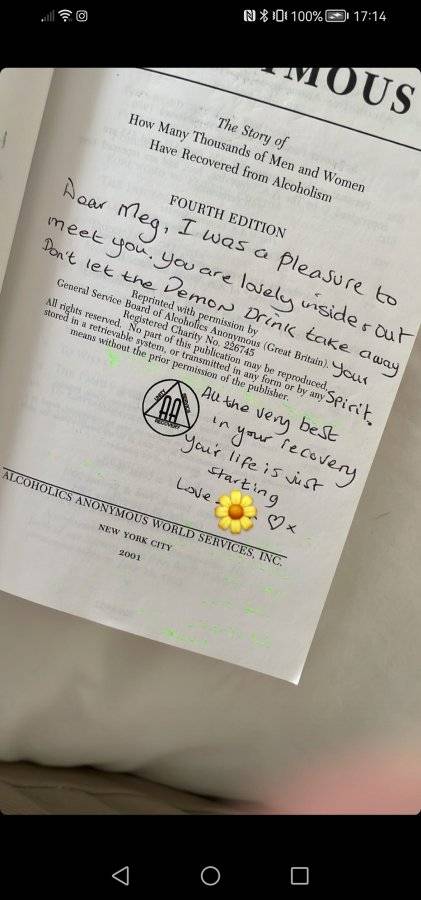 100% 17:14
YMOUS
The Story of
How Many Thousands of Men and Women
Have Recovered from Alcoholism
FOURTH EDITION
Dear Meg, I was a pleasure to
meet you. you are lovely inside & out
Don't let the Demon Drink take away
your
Spirit.
Reprinted with permission by
General Service Board of Alcoholics Anonymous (Great Britain).
Registered Charity No. 226745
All rights reserved. No part of this publication may be reproduced,
stored in a retrievable system, or transmitted in any form or by any
means without the prior permission of the publisher.
UNITY SERVICE
AA
RECOVERY
All the very best
in your recovery
your life is just
starting
Love - ♡ x
ALCOHOLICS ANONYMOUS WORLD SERVICES, INC.
NEW YORK CITY
2001